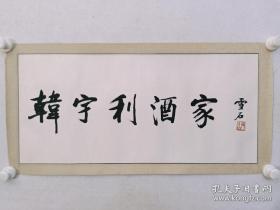 韓宇利酒家
雪石
孔夫子旧书网